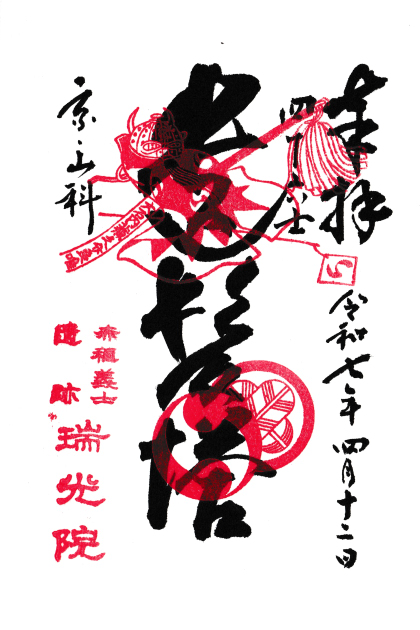 奉拝
令和七年四月十二日
四十六士
遺髪塔
京山科
赤穂義士
遺跡
瑞光院